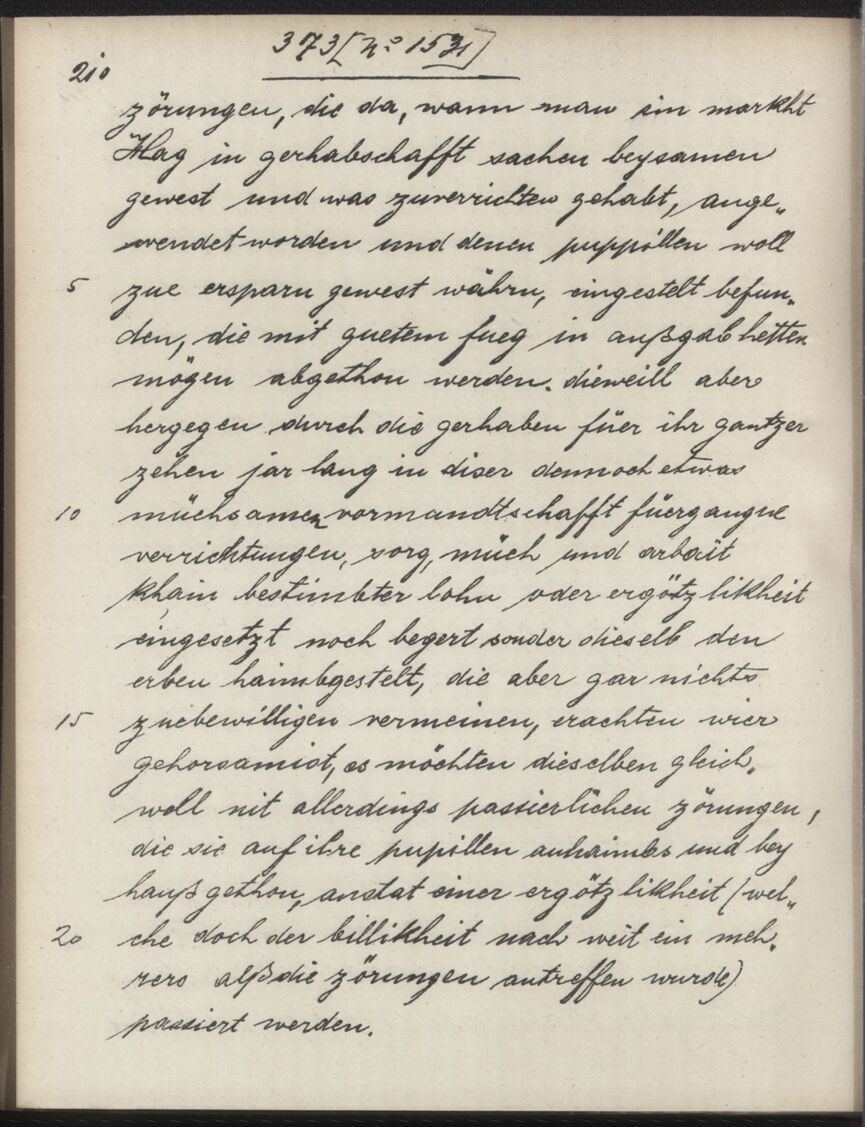 373 [No 153]
210
zörungen, die da, wann man im markht
Hag in gerhabschafft sachen beysamen
gewest und was zuverrichten gehabt, ange„
wendet worden und denen puppillen woll
5 zue ersparn gewest währn, eingestelt befun„
den, die mit guetem fueg in außgab hetten
mögen abgethon werden. dieweill aber
hergegen durch die gerhaben füer ihr gantzer
zehen jar lang in diser dennoch etwas
10 müehsamen vormundtschafft füergangne
verrichtungen, sorg, müeh und arbeit
khain bestimbter lohn oder ergötzlikheit
eingesetzt noch begert sonder dieselb den
erben haimbgestelt, die aber gar nichts
15 zuebewilligen vermeinen, erachten wier
gehorsamist, es möchten dieselben gleich„
woll nit allerdings passierlichen zörungen,
die sie auf ihre pupillen anhaimbs und bey
hauß gethon, anstat einer ergötzlikheit (wel„
20 che doch der billikheit nach weit ein meh„
rers alß die zörungen antreffen wurde)
passiert werden.